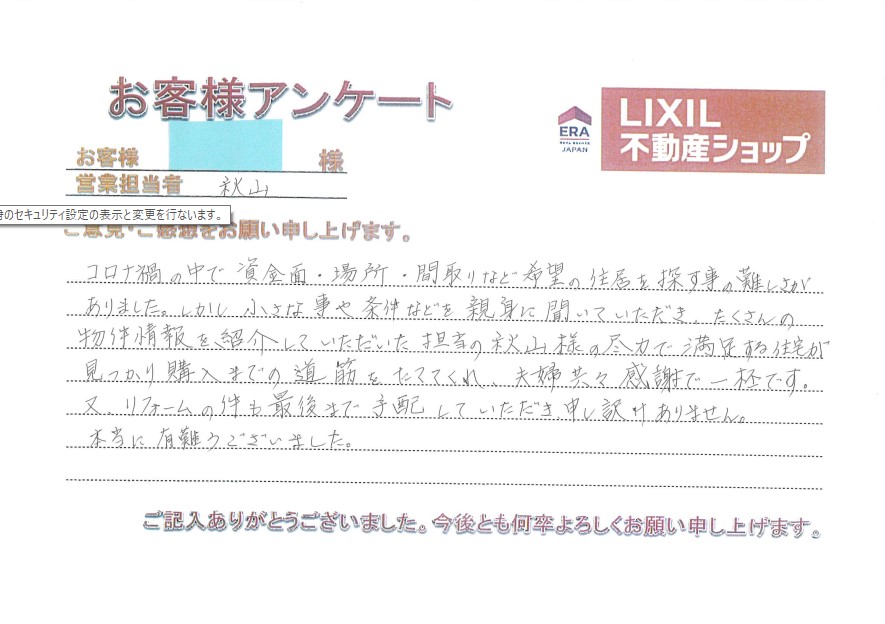 お客様アンケート
ERA
REAL ESTATE
JAPAN
LIXIL
不動産ショップ
お客様 様
営業担当者 秋山
身のセキュリティ設定の表示と変更を行ないます。
ご意見・ご感想をお願い申し上げます。
コロナ禍の中で資金面・場所・間取りなど希望の住居を探す事の難しさが
ありました。しかし小さな事や条件などを親身に聞いていただき、たくさんの
物件情報を紹介していただいた担当の秋山様の尽力で満足する住宅が
見つかり購入までの道筋をたててくれ、夫婦共々感謝で一杯です。
又、リフォームの件も最後まで手配していただき申し訳けありません。
本当に有難うございました。
ご記入ありがとうございました。今後とも何卒よろしくお願い申し上げます。